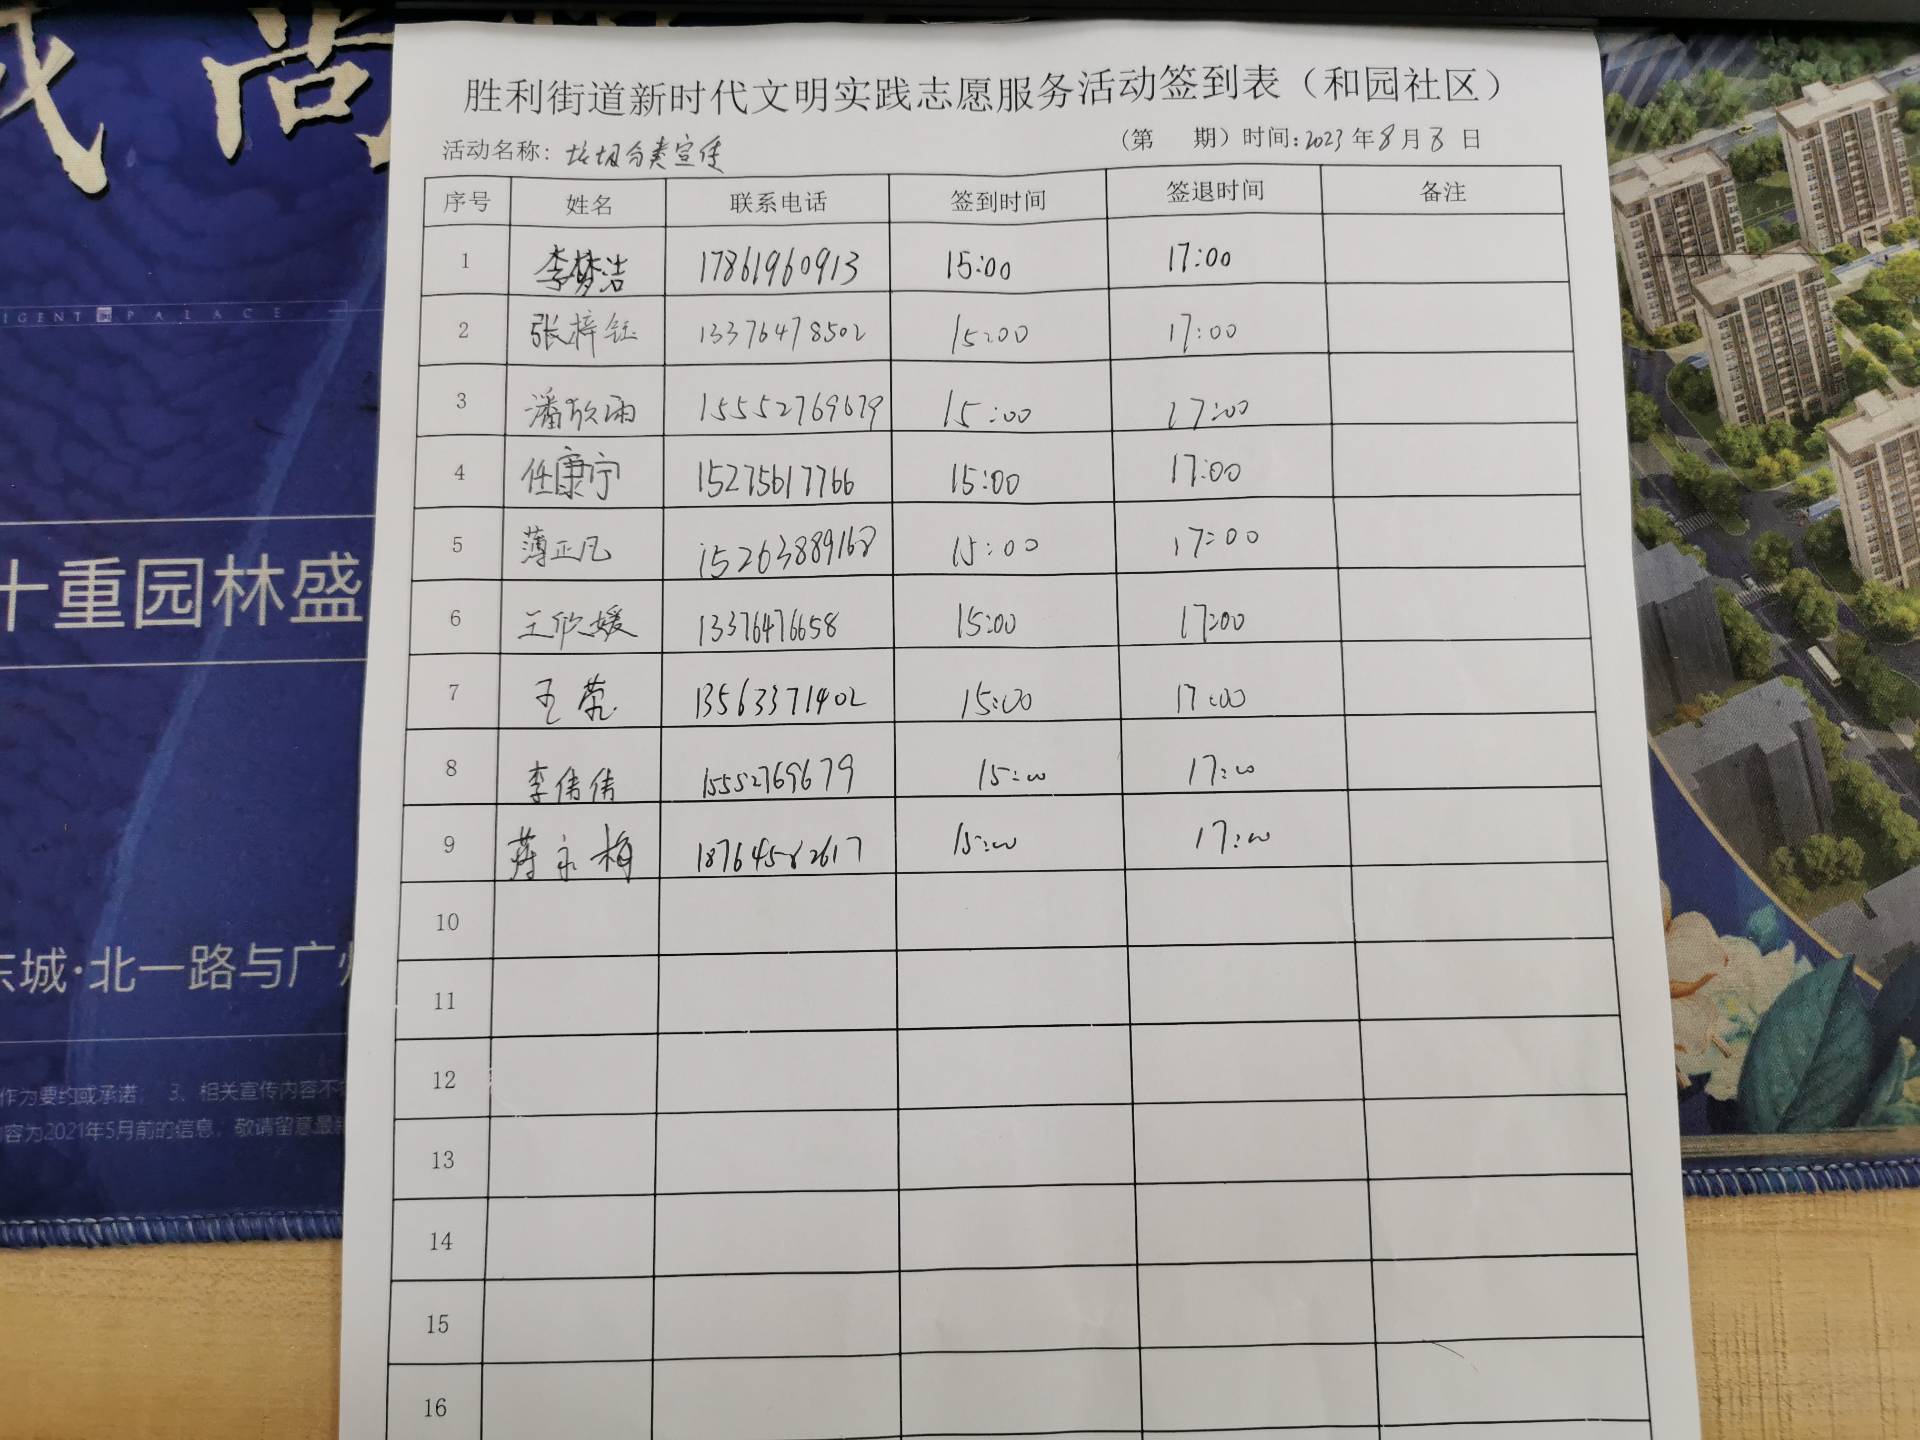 胜利街道新时代文明实践志愿服务活动签到表（和园社区）
活动名称：垃圾分类宣传 （第 期）时间：2023年8月8日
序号 姓名 联系电话 签到时间 签退时间 备注
1 李梦洁 17861960913 15:00 17:00
2 张梓钰 13376478502 15:00 17:00
3 潘欣雨 15552769679 15:00 17:00
4 任康宁 15275617766 15:00 17:00
5 薄正凡 15263889168 15:00 17:00
6 王欣媛 13376476658 15:00 17:00
7 王蕊 13563371402 15:00 17:00
8 李倩倩 15552769679 15:00 17:00
9 蒋永梅 18764582617 15:00 17:00
10
11
12
13
14
15
16
城尚
IGENT PALACE
十重园林盛
东城·北一路与广州
作为要约或承诺； 3、相关宣传内容不
内容为2021年5月前的信息，敬请留意最新